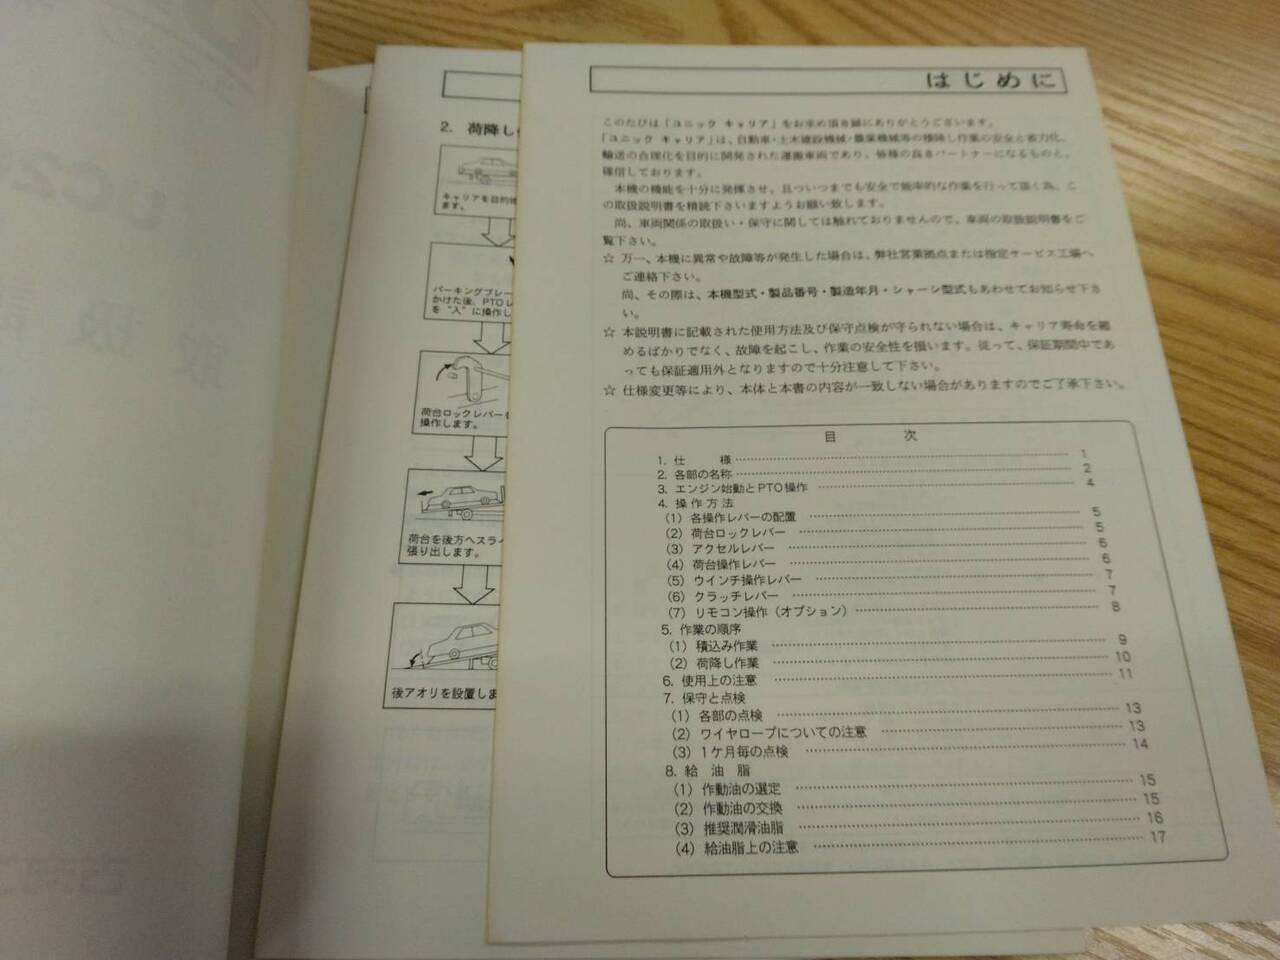 2. 荷降し
キャリアを目的
ます。
パーキングブレー
かけた後、PTOレ
を"入"に操作し
荷台ロックレバーを
操作します。
荷台を後方へスライ
張り出します。
後アオリを設置しま
はじめに
このたびは「ユニック キャリア」をお求め頂き誠にありがとうございます。
「ユニック キャリア」は、自動車・土木建設機械・農業機械等の積降し作業の安全と省力化、
輸送の合理化を目的に開発された運搬車両であり、皆様の良きパートナーになるものと、
確信しております。
本機の機能を十分に発揮させ、且ついつまでも安全で能率的な作業を行って頂く為、こ
の取扱説明書を精読下さいますようお願い致します。
尚、車両関係の取扱い・保守に関しては触れておりませんので、車両の取扱説明書をご
覧下さい。
☆ 万一、本機に異常や故障等が発生した場合は、弊社営業拠点または指定サービス工場へ
ご連絡下さい。
尚、その際は、本機型式・製品番号・製造年月・シャーシ型式もあわせてお知らせ下さ
い。
☆ 本説明書に記載された使用方法及び保守点検が守られない場合は、キャリア寿命を縮
めるばかりでなく、故障を起こし、作業の安全性を損います。従って、保証期間中であ
っても保証適用外となりますので十分注意して下さい。
☆ 仕様変更等により、本体と本書の内容が一致しない場合がありますのでご了承下さい。
目 次
1. 仕 様 …… 1
2. 各部の名称 …… 2
3. エンジン始動とPTO操作 …… 4
4. 操作方法
(1) 各操作レバーの配置 …… 5
(2) 荷台ロックレバー …… 5
(3) アクセルレバー …… 6
(4) 荷台操作レバー …… 6
(5) ウインチ操作レバー …… 7
(6) クラッチレバー …… 7
(7) リモコン操作（オプション） …… 8
5. 作業の順序
(1) 積込み作業 …… 9
(2) 荷降し作業 …… 10
6. 使用上の注意 …… 11
7. 保守と点検
(1) 各部の点検 …… 13
(2) ワイヤロープについての注意 …… 13
(3) 1ケ月毎の点検 …… 14
8. 給 油 脂
(1) 作動油の選定 …… 15
(2) 作動油の交換 …… 15
(3) 推奨潤滑油脂 …… 16
(4) 給油脂上の注意 …… 17